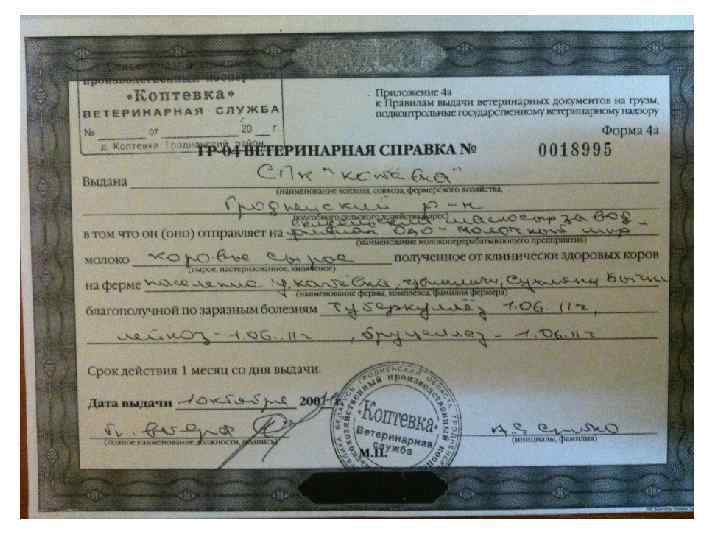 производственный кооператив
«Коптевка»
ВЕТЕРИНАРНАЯ СЛУЖБА
№ от 20 г.
д. Коптевка Гродненский район
Приложение 4а
к Правилам выдачи ветеринарных документов на грузы,
подконтрольные государственному ветеринарному надзору
Форма 4а
ГР-04 ВЕТЕРИНАРНАЯ СПРАВКА № 0018995
Выдана СПК "Коптевка"
(наименование колхоза, совхоза, фермерского хозяйства,
Гродненский р-н
подсобного сельского хозяйства и др.)
маслосырзавод
в том что он (оно) отправляет на филиал ОАО - Молочный мир
(наименование молокоперерабатывающего предприятия)
молоко коровье сырое полученное от клинически здоровых коров
(сырое, пастеризованное, кипяченое)
на ферме население д. Коптевка,
(наименование фермы, комплекса, фамилия фермера)
благополучной по заразным болезням туберкулёз 1.06.11г,
лейкоз - 1.06.11г, бруцеллёз - 1.06.11г
Срок действия 1 месяц со дня выдачи.
Дата выдачи 1 октября 200 г.
(полное наименование должности, подпись)
М.П.
(инициалы, фамилия)
"Коптевка"
Ветеринарная
служба